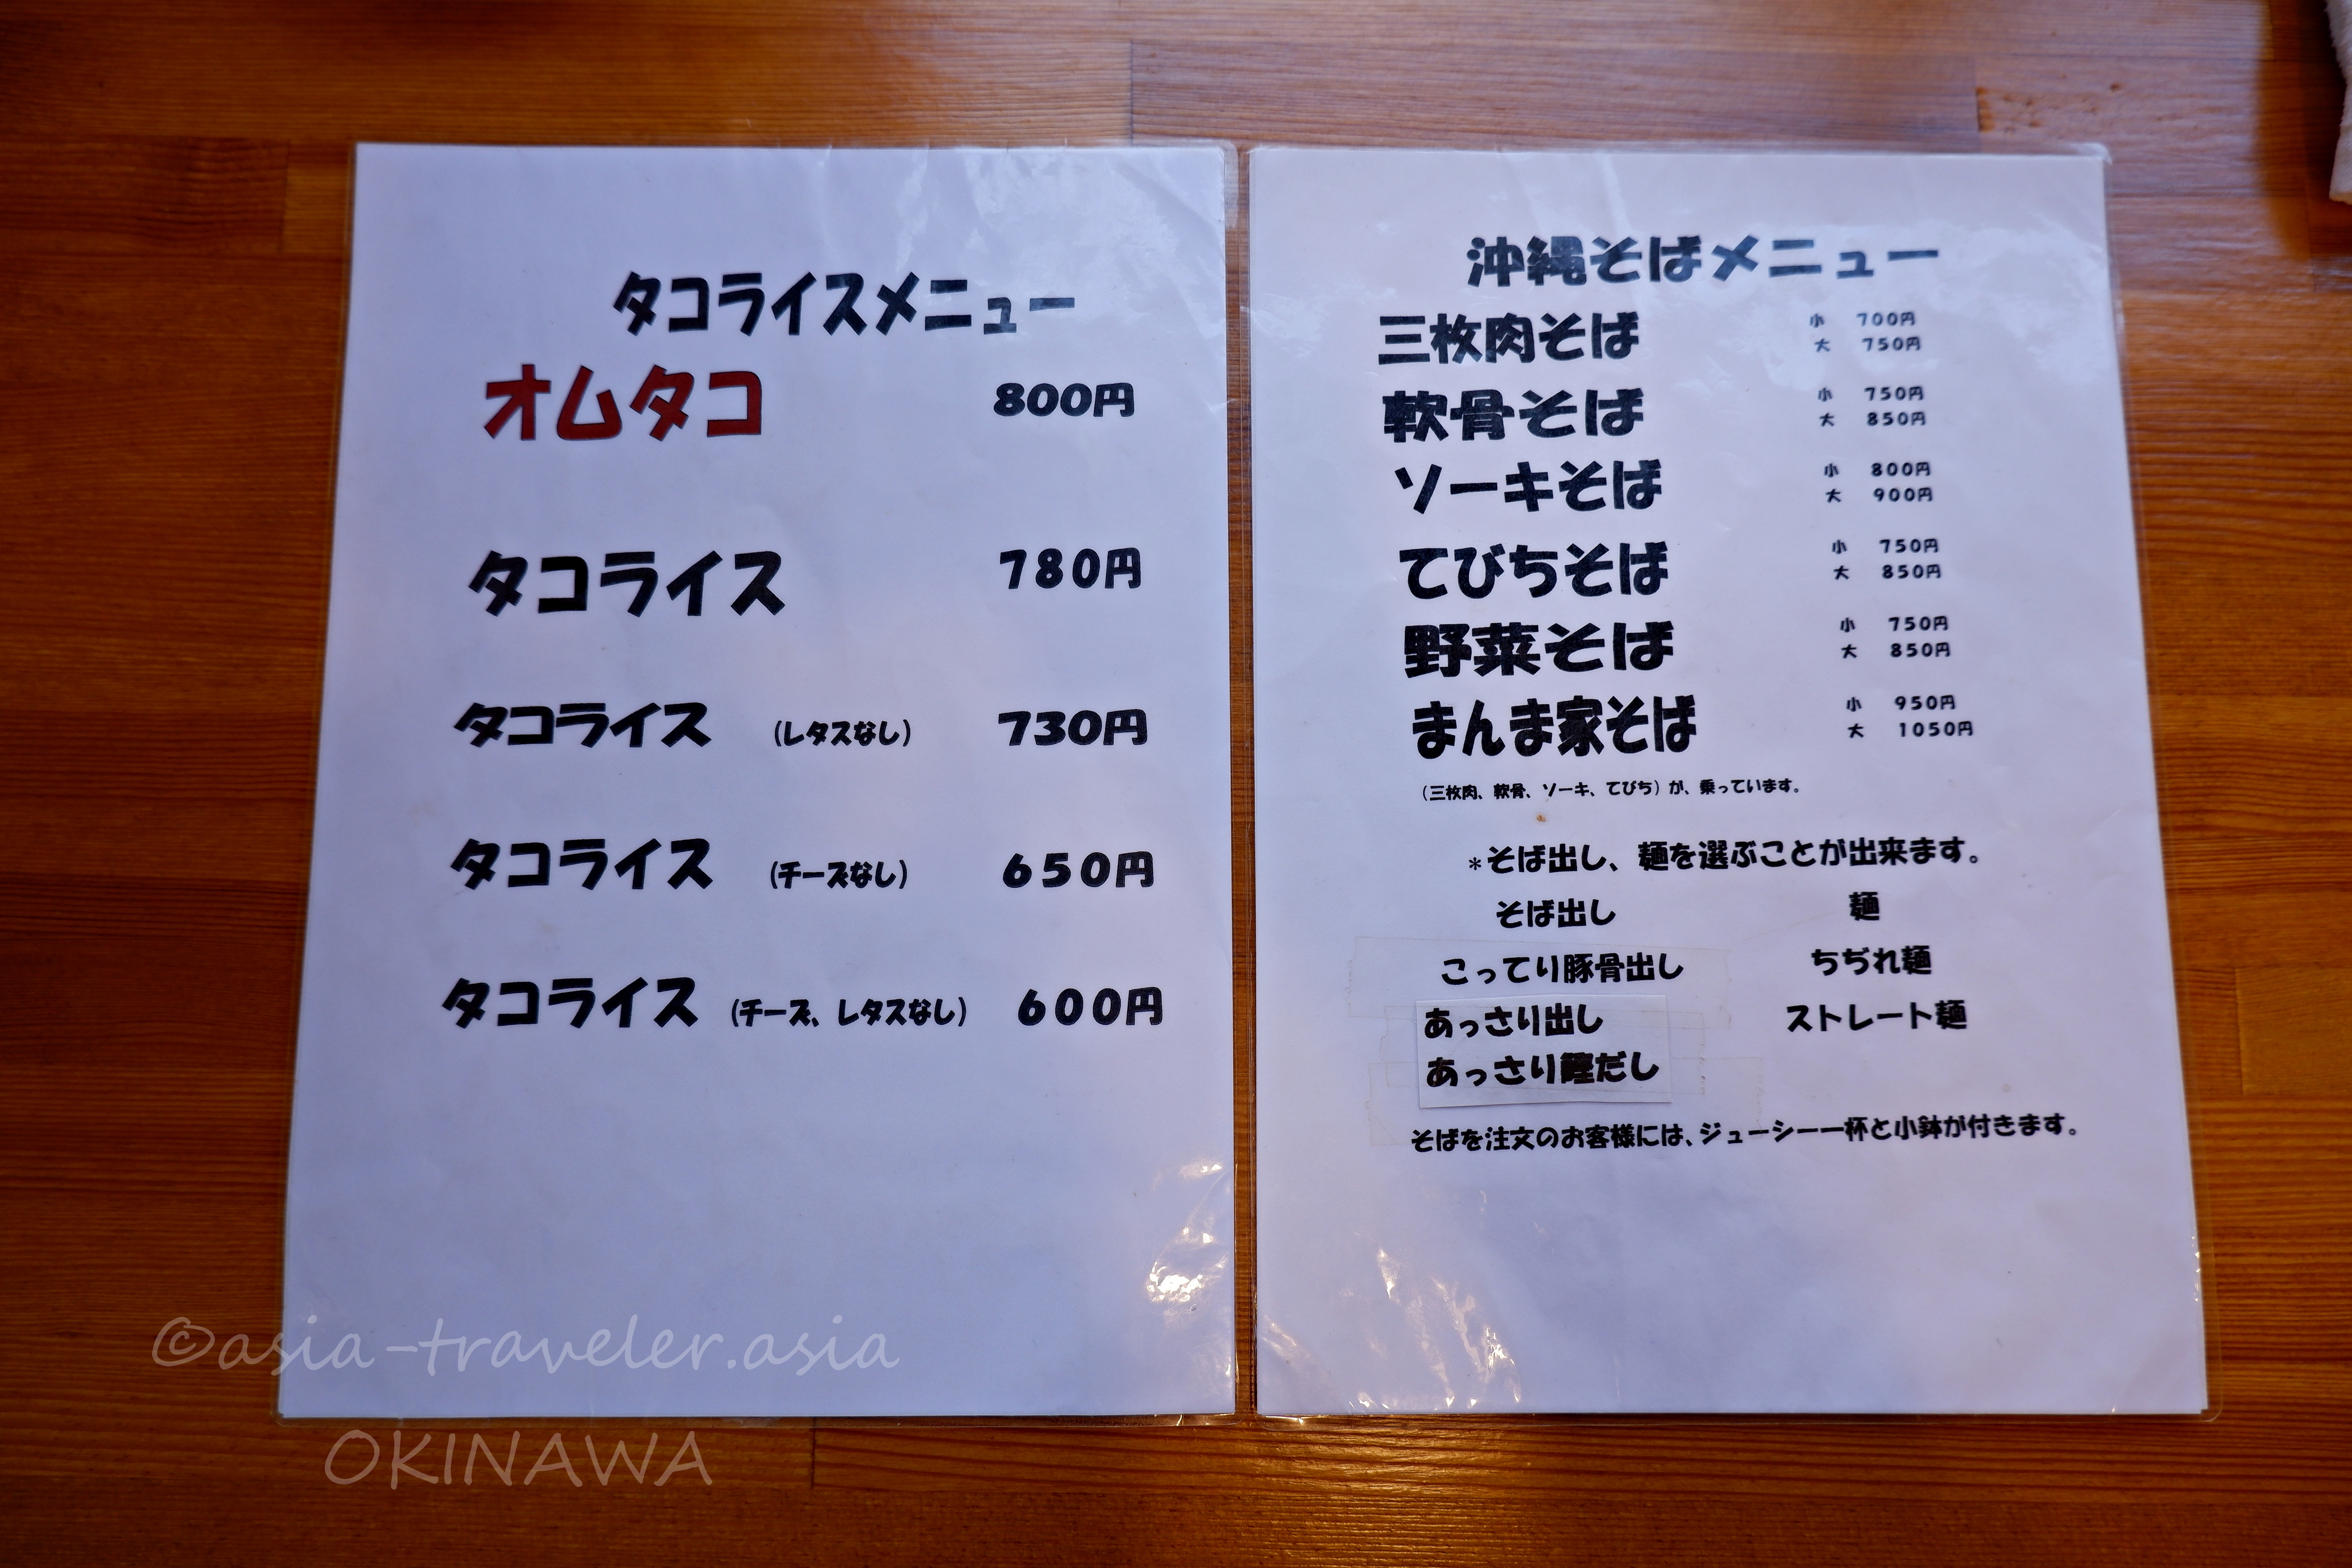 タコライスメニュー
オムタコ 800円
タコライス 780円
タコライス (レタスなし) 730円
タコライス (チーズなし) 650円
タコライス (チーズ、レタスなし) 600円
沖縄そばメニュー
三枚肉そば 小 700円
大 750円
軟骨そば 小 750円
大 850円
ソーキそば 小 800円
大 900円
てびちそば 小 750円
大 850円
野菜そば 小 750円
大 850円
まんま家そば 小 950円
大 1050円
(三枚肉、軟骨、ソーキ、てびち) が、乗っています。
*そば出し、麺を選ぶことが出来ます。
そば出し 麺
こってり豚骨出し ちぢれ麺
あっさり出し ストレート麺
あっさり鰹だし
そばを注文のお客様には、ジューシー一杯と小鉢が付きます。
©asia-traveler.asia
OKINAWA